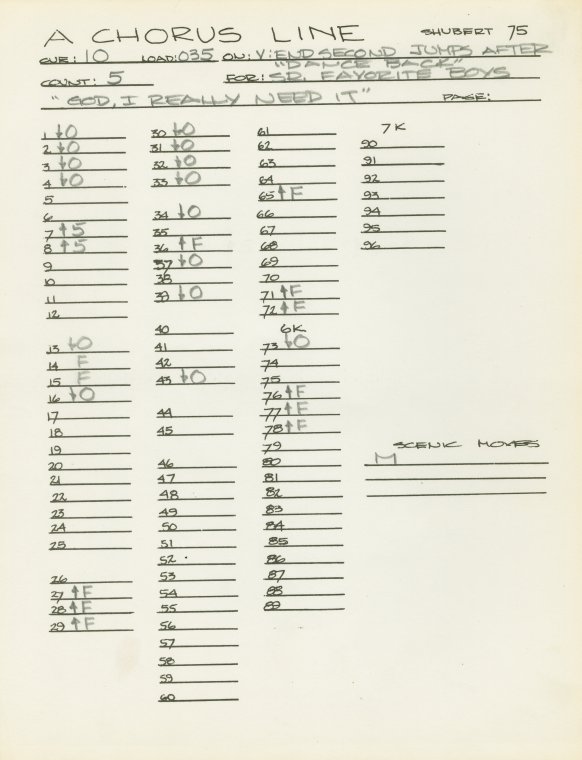 A CHORUS LINE SHUBERT 75
CUE: 10 LOAD: 035 ON: V: END SECOND JUMPS AFTER
"DANCE BACK"
COUNT: 5 FOR: SR. FAVORITE BOYS
"GOD, I REALLY NEED IT" PAGE:
1 ↓0
2 ↓0
3 ↓0
4 ↓0
5
6
7 ↑5
8 ↑5
9
10
11
12
13 ↓0
14 F
15 F
16 ↓0
17
18
19
20
21
22
23
24
25
26
27 ↑F
28 ↑F
29 ↑F
30 ↓0
31 ↓0
32 ↓0
33 ↓0
34 ↓0
35
36 ↑F
37 ↓0
38
39 ↓0
40
41
42
43 ↓0
44
45
46
47
48
49
50
51
52
53
54
55
56
57
58
59
60
61
62
63
64
65 ↑F
66
67
68
69
70
71 ↑F
72 ↑F
6K
73 ↓0
74
75
76 ↑F
77 ↑F
78 ↑F
79
80
81
82
83
84
85
86
87
88
89
7K
90
91
92
93
94
95
96
SCENIC MOVES
M